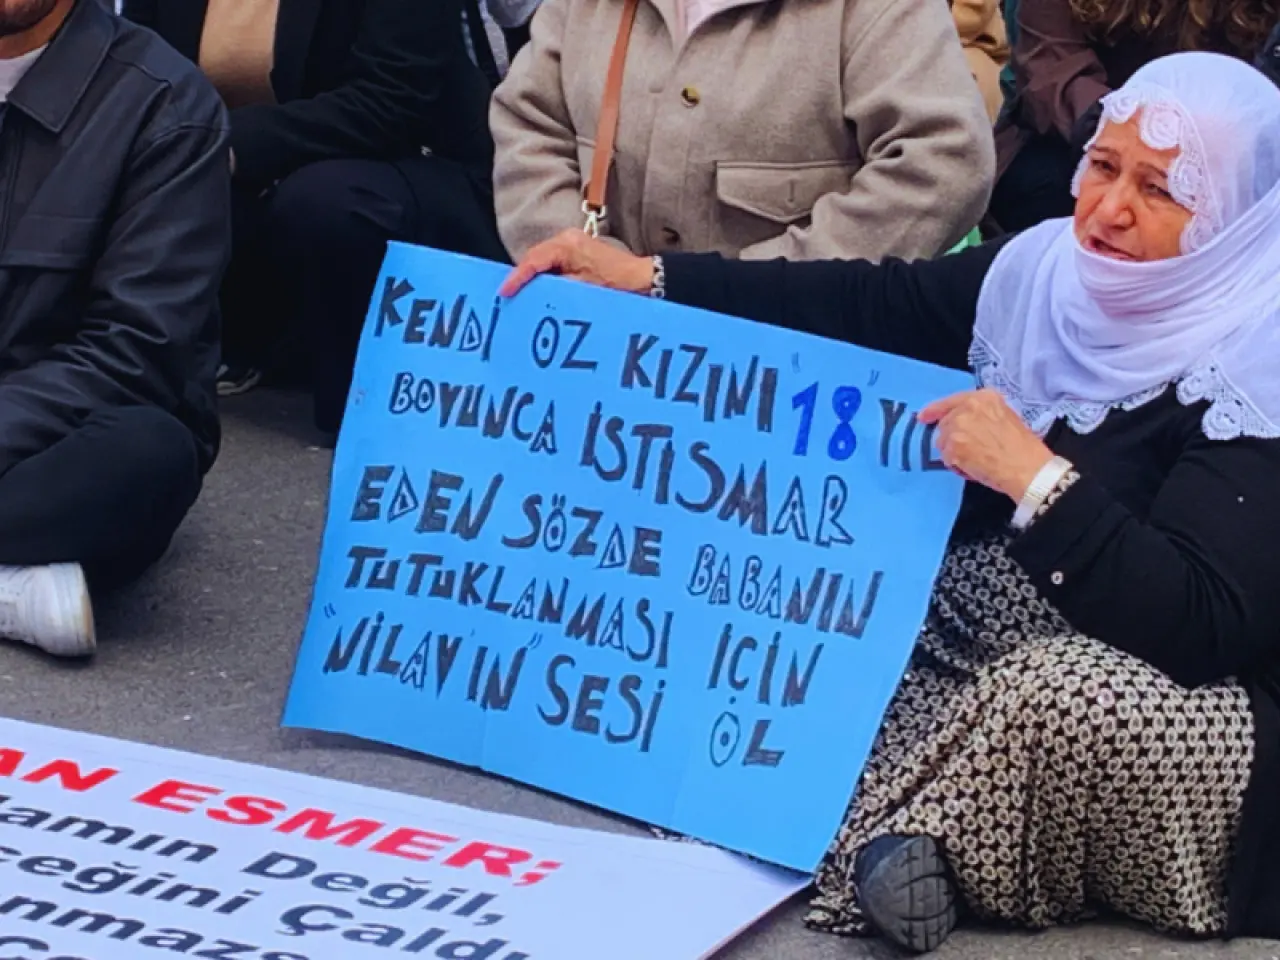 KENDİ ÖZ KIZINI "18" YIL
BOYUNCA İSTİSMAR
EDEN SÖZDE BABANIN
TUTUKLANMASI İÇİN
"NİLAY'IN" SESİ OL
AN ESMER;
Değil,
Çaldı